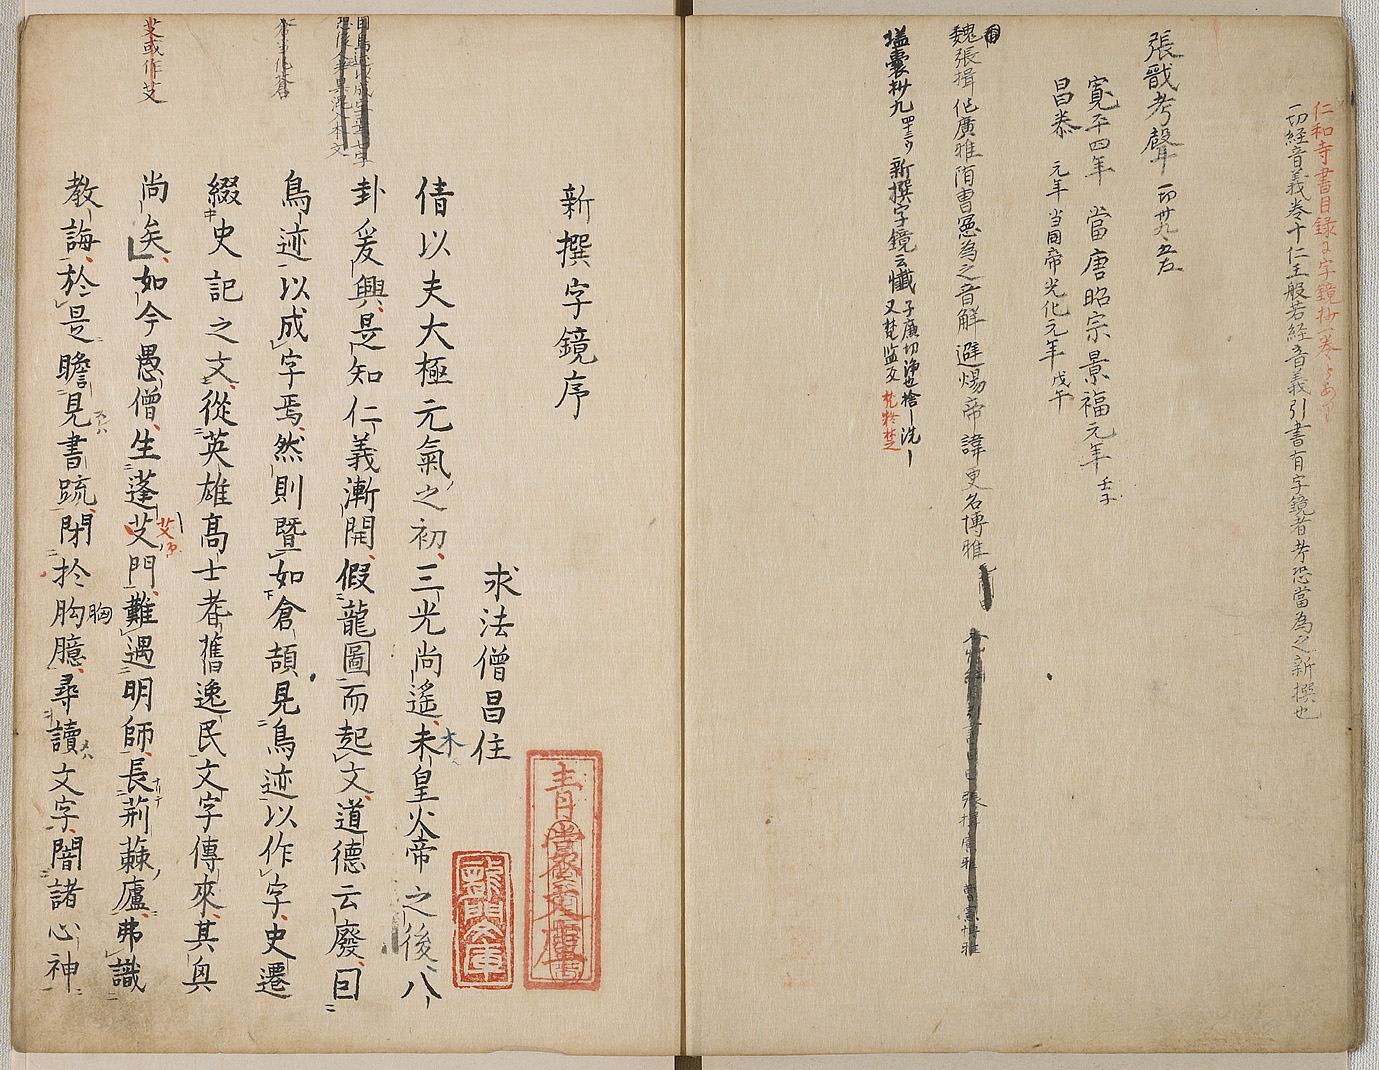 仁和寺書目録ニ字鏡抄一巻とあり
一切経音義巻十仁王般若経音義引書有字鏡者考恐當為之新撰也
張戩考聲
寛平四年 當唐昭宗景福元年 壬子
昌泰 元年 当同帝光化元年 戊午
魏張揖作廣雅隋曹憲為之音解 避煬帝諱更名博雅
塵嚢抄九 新撰字鏡云懺
又梵監反
新撰字鏡序
求法僧昌住
倩以夫大極元氣之初三光尚遙未皇火帝之後八
木
卦爰興是知仁義漸開假龍圖而起文道德云廢因
鳥迹以成字焉然則暨如倉頡見鳥迹以作字史遷
綴史記之文從英雄高士耆舊逸民文字傳來其興
尚矣如今愚僧生蓬艾門難遇明師長荊蕀廬弗識
艾
教誨於是瞻見書疏閉於胸臆尋讀文字闇諸心神
胸
艾或作芠
青裳文庫